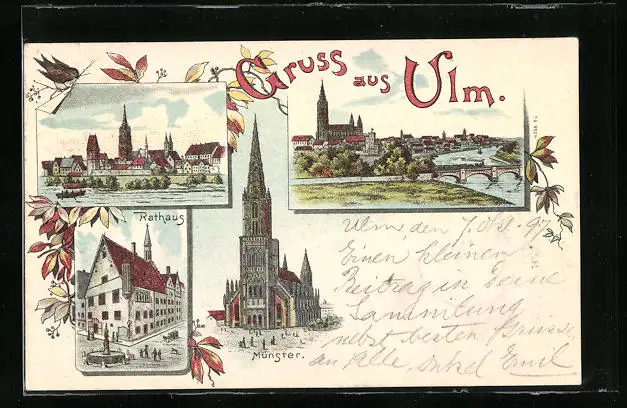 Gruss aus Ulm.
Rathaus
Münster.
Ulm, den 7. Okt. 97
Einen kleinen
Beitrag in deine
Sammlung
nebst besten Grüsse
an Alle, Onkel Emil